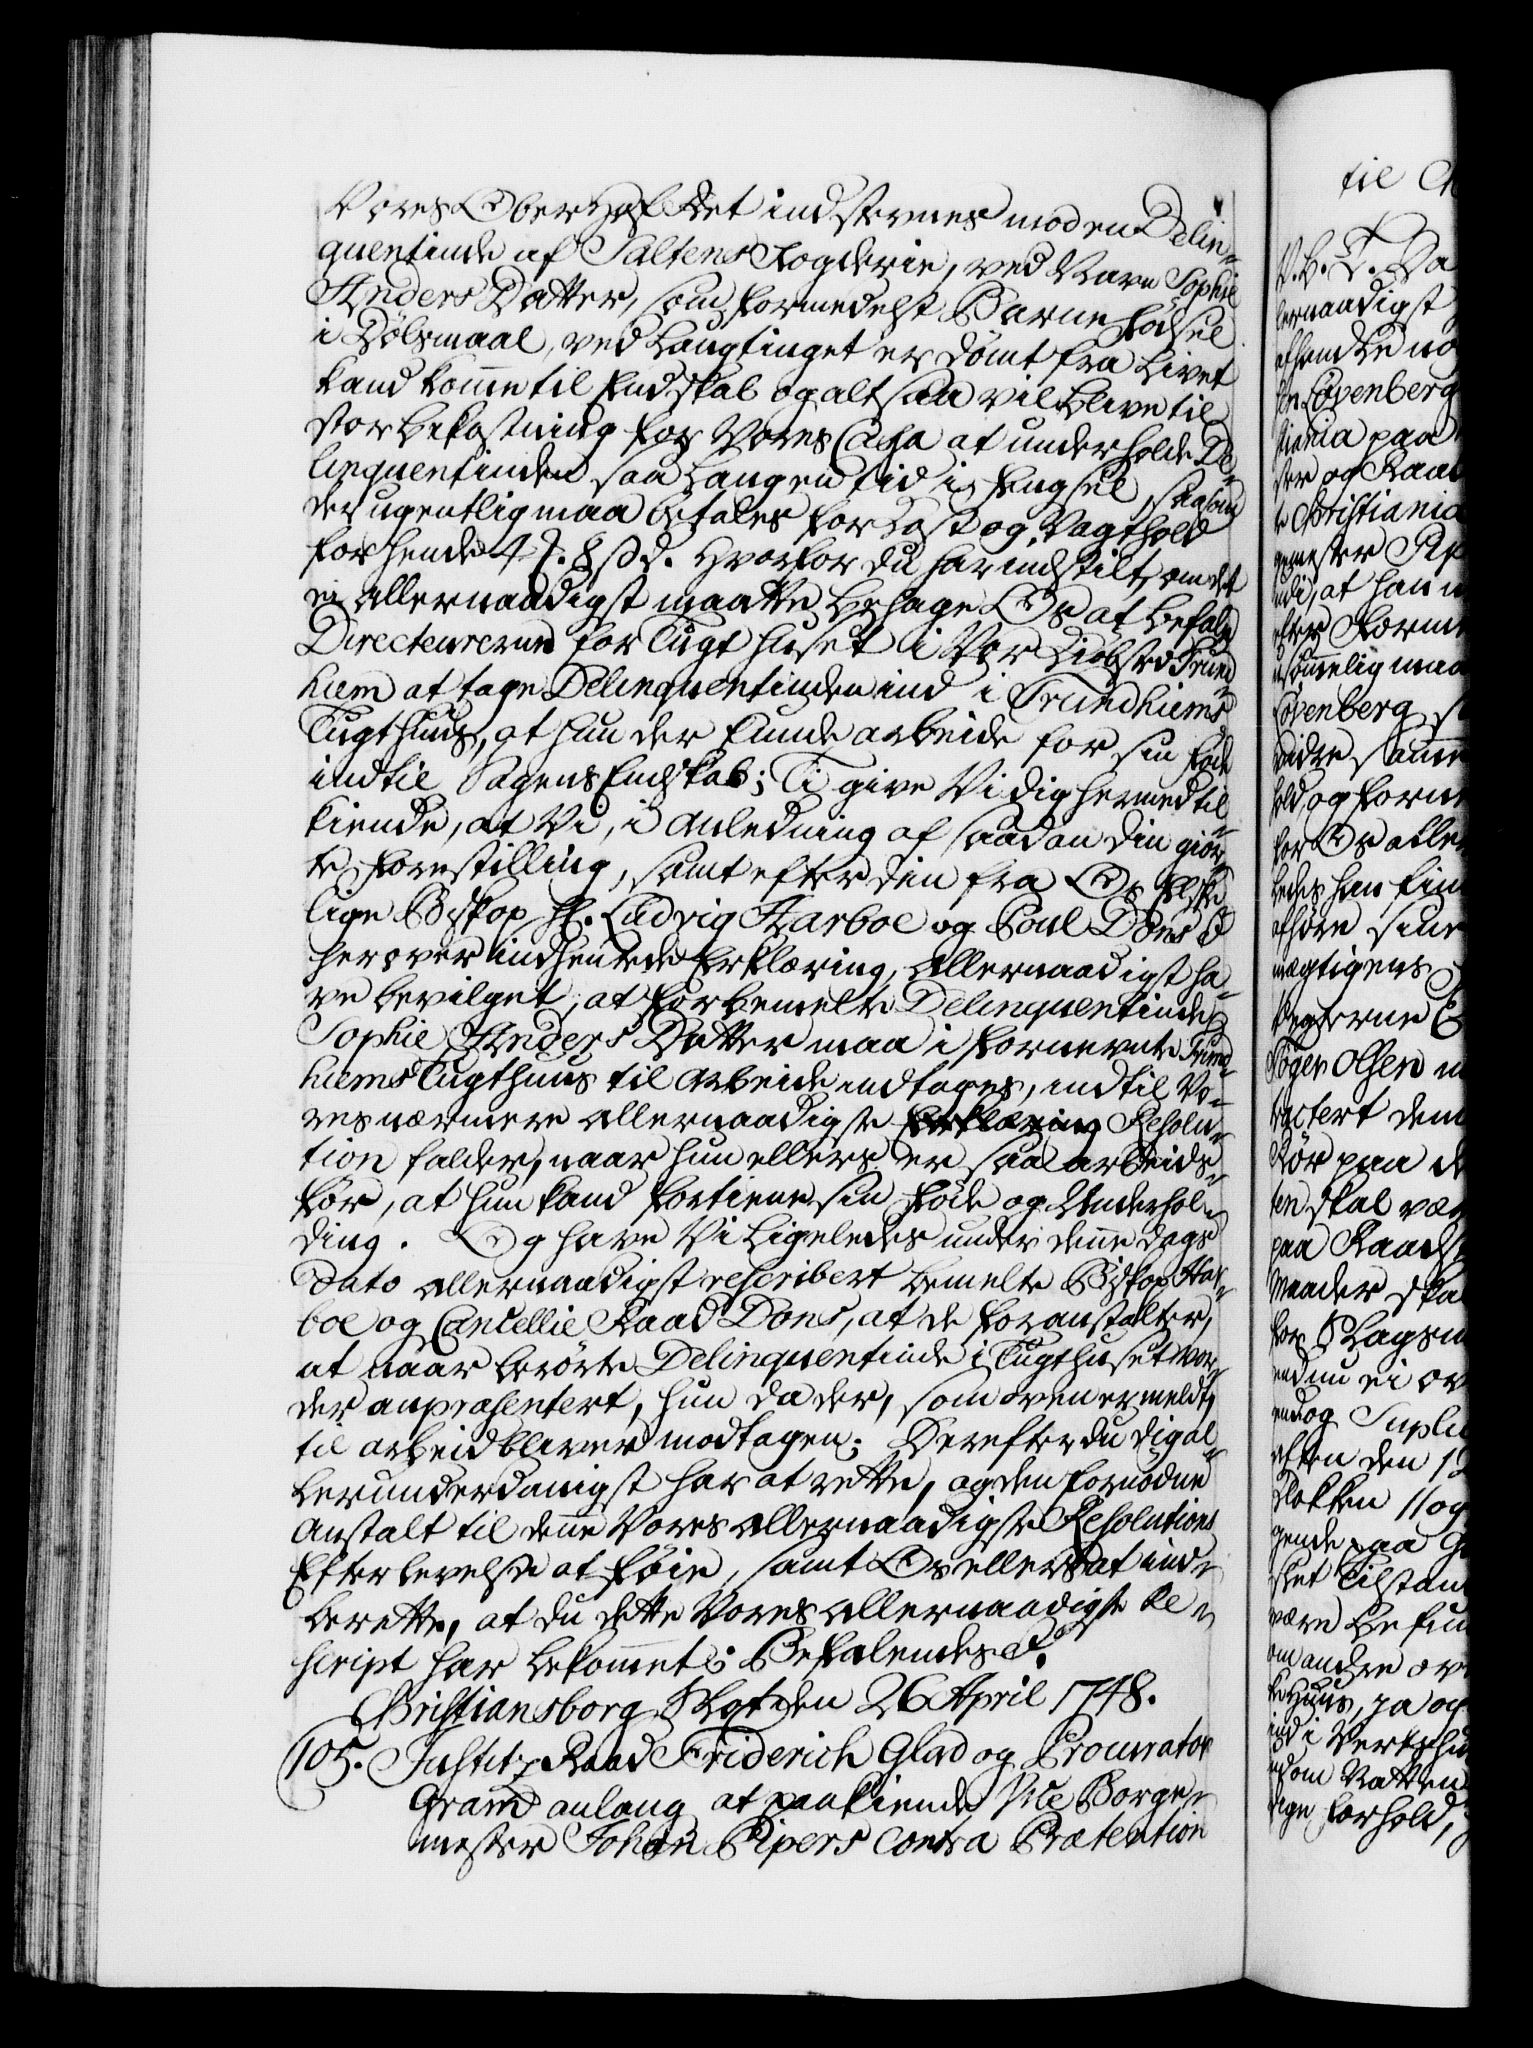 Vores OberHofRet indstevnes mod en Delin-
quentinde af Saltens Fogderie, ved Navn Sophie
Anders Datter, som formedelst Barne Fødsel
i Dølgsmaal, ved Laugtinget er dømt fra Livet
kand komme til Endskab og altsaa vil blive til
stor bekostning for Vores Cassa at underholde De-
linquentinden saa Langen tid i fængsel, saasom
der ugentlig maa betales for Kost og Vagthold
for hende 4 . 8 sd. Hvorfor du har indstilt, om det
ei allernaadigst maatte behage Os at befale
Directeurerne for Tugt huset i Vor Kiøbsted Trund-
hiem at tage Delinquentinden ind i Trundhiems
Tugthuus, at hun der kunde arbeide for sin føde
indtil Sagens Endskab; Ti give Vi dig hermed til
kiende, at Vi, i anledning af saadan din giør-
te forestilling, samt efter den fra Os Elske-
lige Biskop Hr. Ludvig Harboe og Poul Dons
herover indhentede Erklæring, allernaadigst ha-
ve bevilget, at forbemelte Delinquentinde
Sophie Anders Datter maa i fornevnte Trund-
hiems Tugthuus til arbeide indtages, indtil Vo-
res nærmere allernaadigste Erklæring Resolu-
tion falder, naar hun ellers er saa arbeids-
før, at hun kand fortiene sin føde og Underhol-
ding. Og have Vi ligeledes under denne dags
Dato allernaadigst rescribert bemelte Biskop Har-
boe og Cancellie Raad Dons, at de foranstalter,
at naar berørte Delinquentinde i Tugthuset vor-
der anpræsentert, hun da der, som oven ermeldt,
til arbeid bliver modtagen; Derefter du dig al-
lerunderdanigst har at rette, og den fornødne
Anstalt til denne Vores allernaadigste Resolutions
Efterlevelse at føie, samt Os ellers at ind-
berette, at du dette Vores allernaadigste Re-
script har bekommet. Befalendes
Christiansborg Slot den 26 April 1748.
105. Justitz Raad Friderich Glad og Procurator
Gram anlang at paakiende Vice Borge-
mester Johan Pipers Contra Prætention